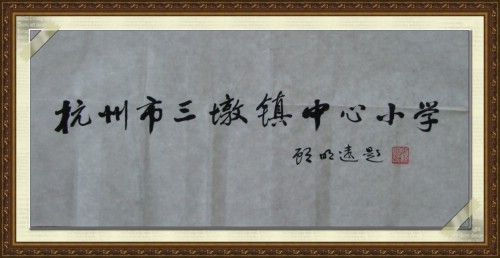 杭州市三墩镇中心小学
顾明远题